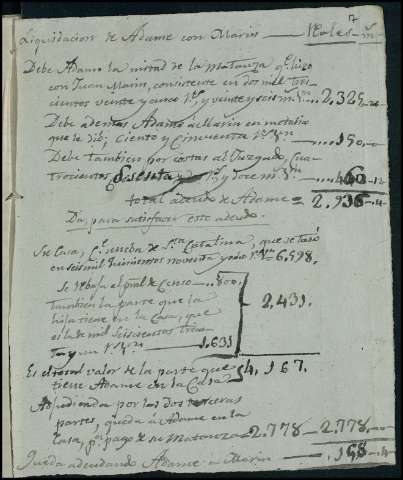 7
Liquidacion de Adame con Marin Rs. vales mrs.
Debe Adame la mitad de la Matanza qe. hizo
con Juan Marin, consistente en dos mil tres-
cientos veinte y cinco rs. y veinte y seis ms. 2,325.26
Debe ademas Adame á Marin en metalico
que le dió; ciento y cinquenta rs. vn. 150.
Debe tambien por costas al Juzgado, cua-
trocientos sesenta y rs. y doze ms. 460.12
total adeudo de Adame = 2.936.4
Da, para satisfacer este adeudo.
Su Casa, Ce. nueba de Sta. Catalina, que se tasó
en seis mil quinientos noventa y ocho rs. 6.598.
Se rebaja el pral. de Censo 800.
tambien la parte que la
hija tiene en la Casa, que
es la de mil seiscientos trein-
ta y un rs. vn. 1.631
2,431.
Es el total valor de la parte que
tiene Adame en la Casa 4,167.
Adjudicada por las dos terceras
partes, queda a Adame en la
Casa, pa. pago de su Matanza 2.778 2,778.
Queda adeudando Adame a Marin 158.4